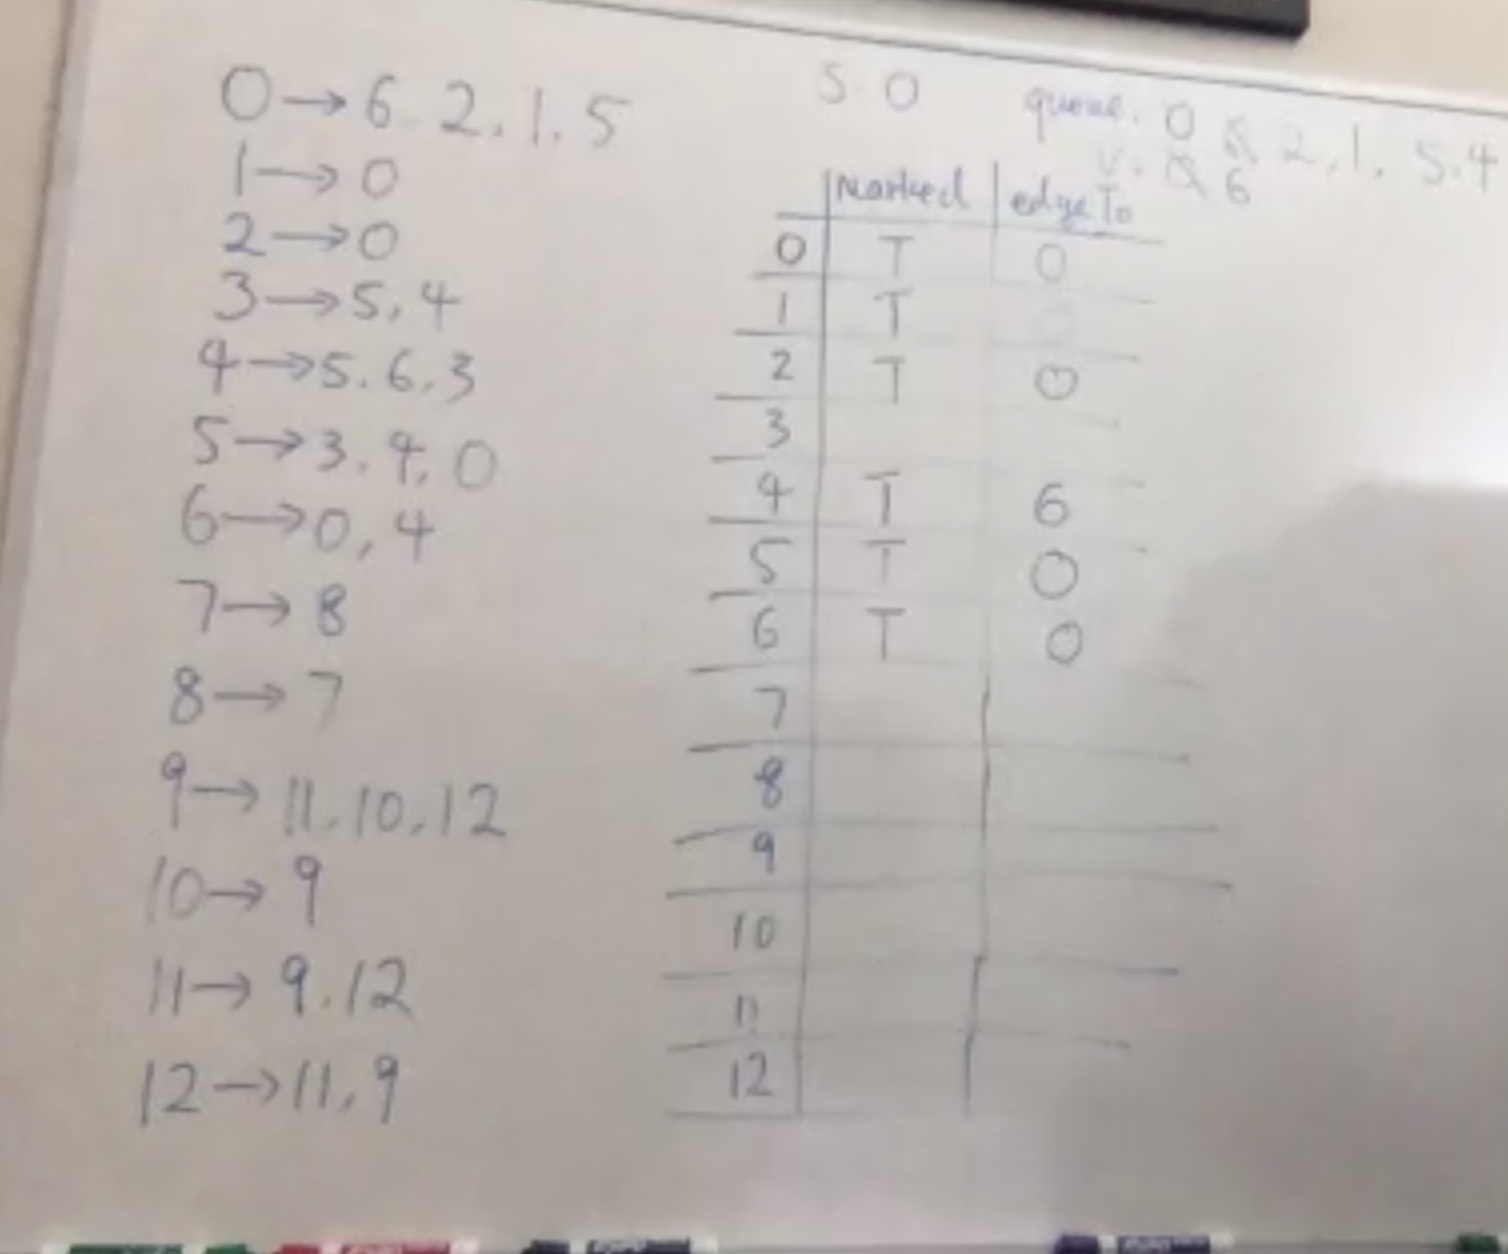 0→6.2.1.5
1→0
2→0
3→5,4
4→5.6.3
5→3.4.0
6→0,4
7→8
8→7
9→11.10.12
10→9
11→9.12
12→11.9
S.0 queue. 0 6 2.1. 5.4
v. 0 6
marked edgeTo
0 T 0
1 T
2 T 0
3
4 T 6
5 T 0
6 T 0
7
8
9
10
11
12